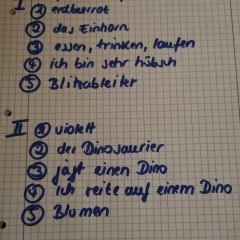 I ① erdbeerrot
② das Einhorn
③ essen, trinken, laufen
④ ich bin sehr hübsch
⑤ Blitzableiter
II ① violett
② der Dinosaurier
③ jagt einen Dino
④ ich reite auf einem Dino
⑤ Blumen